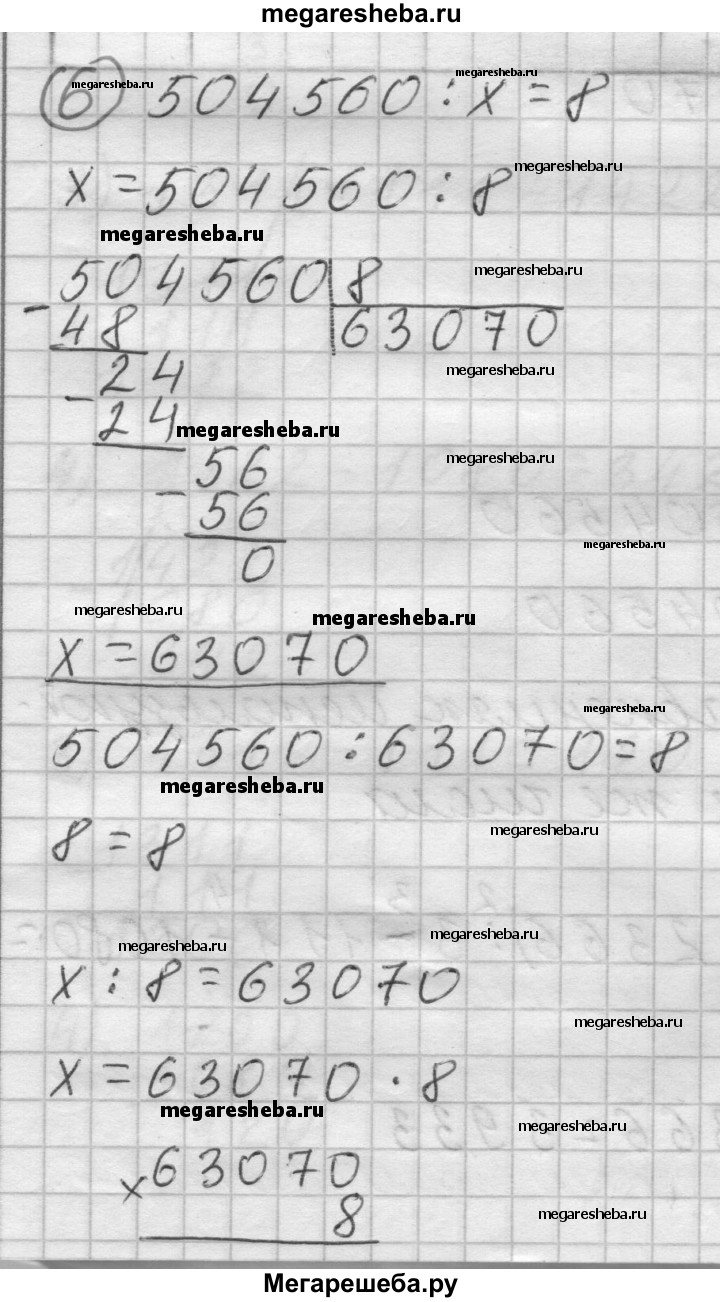 megaresheba.ru
6 megaresheba.ru 504560 : x = 8
megaresheba.ru
x = 504560 : 8
megaresheba.ru
megaresheba.ru
504560 | 8
megaresheba.ru
- 48 | 63070
megaresheba.ru
24
- 24
megaresheba.ru
56
megaresheba.ru
- 56
0
megaresheba.ru
megaresheba.ru
megaresheba.ru
x = 63070
megaresheba.ru
504560 : 63070 = 8
megaresheba.ru
megaresheba.ru
8 = 8
megaresheba.ru
megaresheba.ru
x : 8 = 63070
megaresheba.ru
x = 63070 · 8
megaresheba.ru
megaresheba.ru
x 63070
8
megaresheba.ru
Мегарешеба.ру